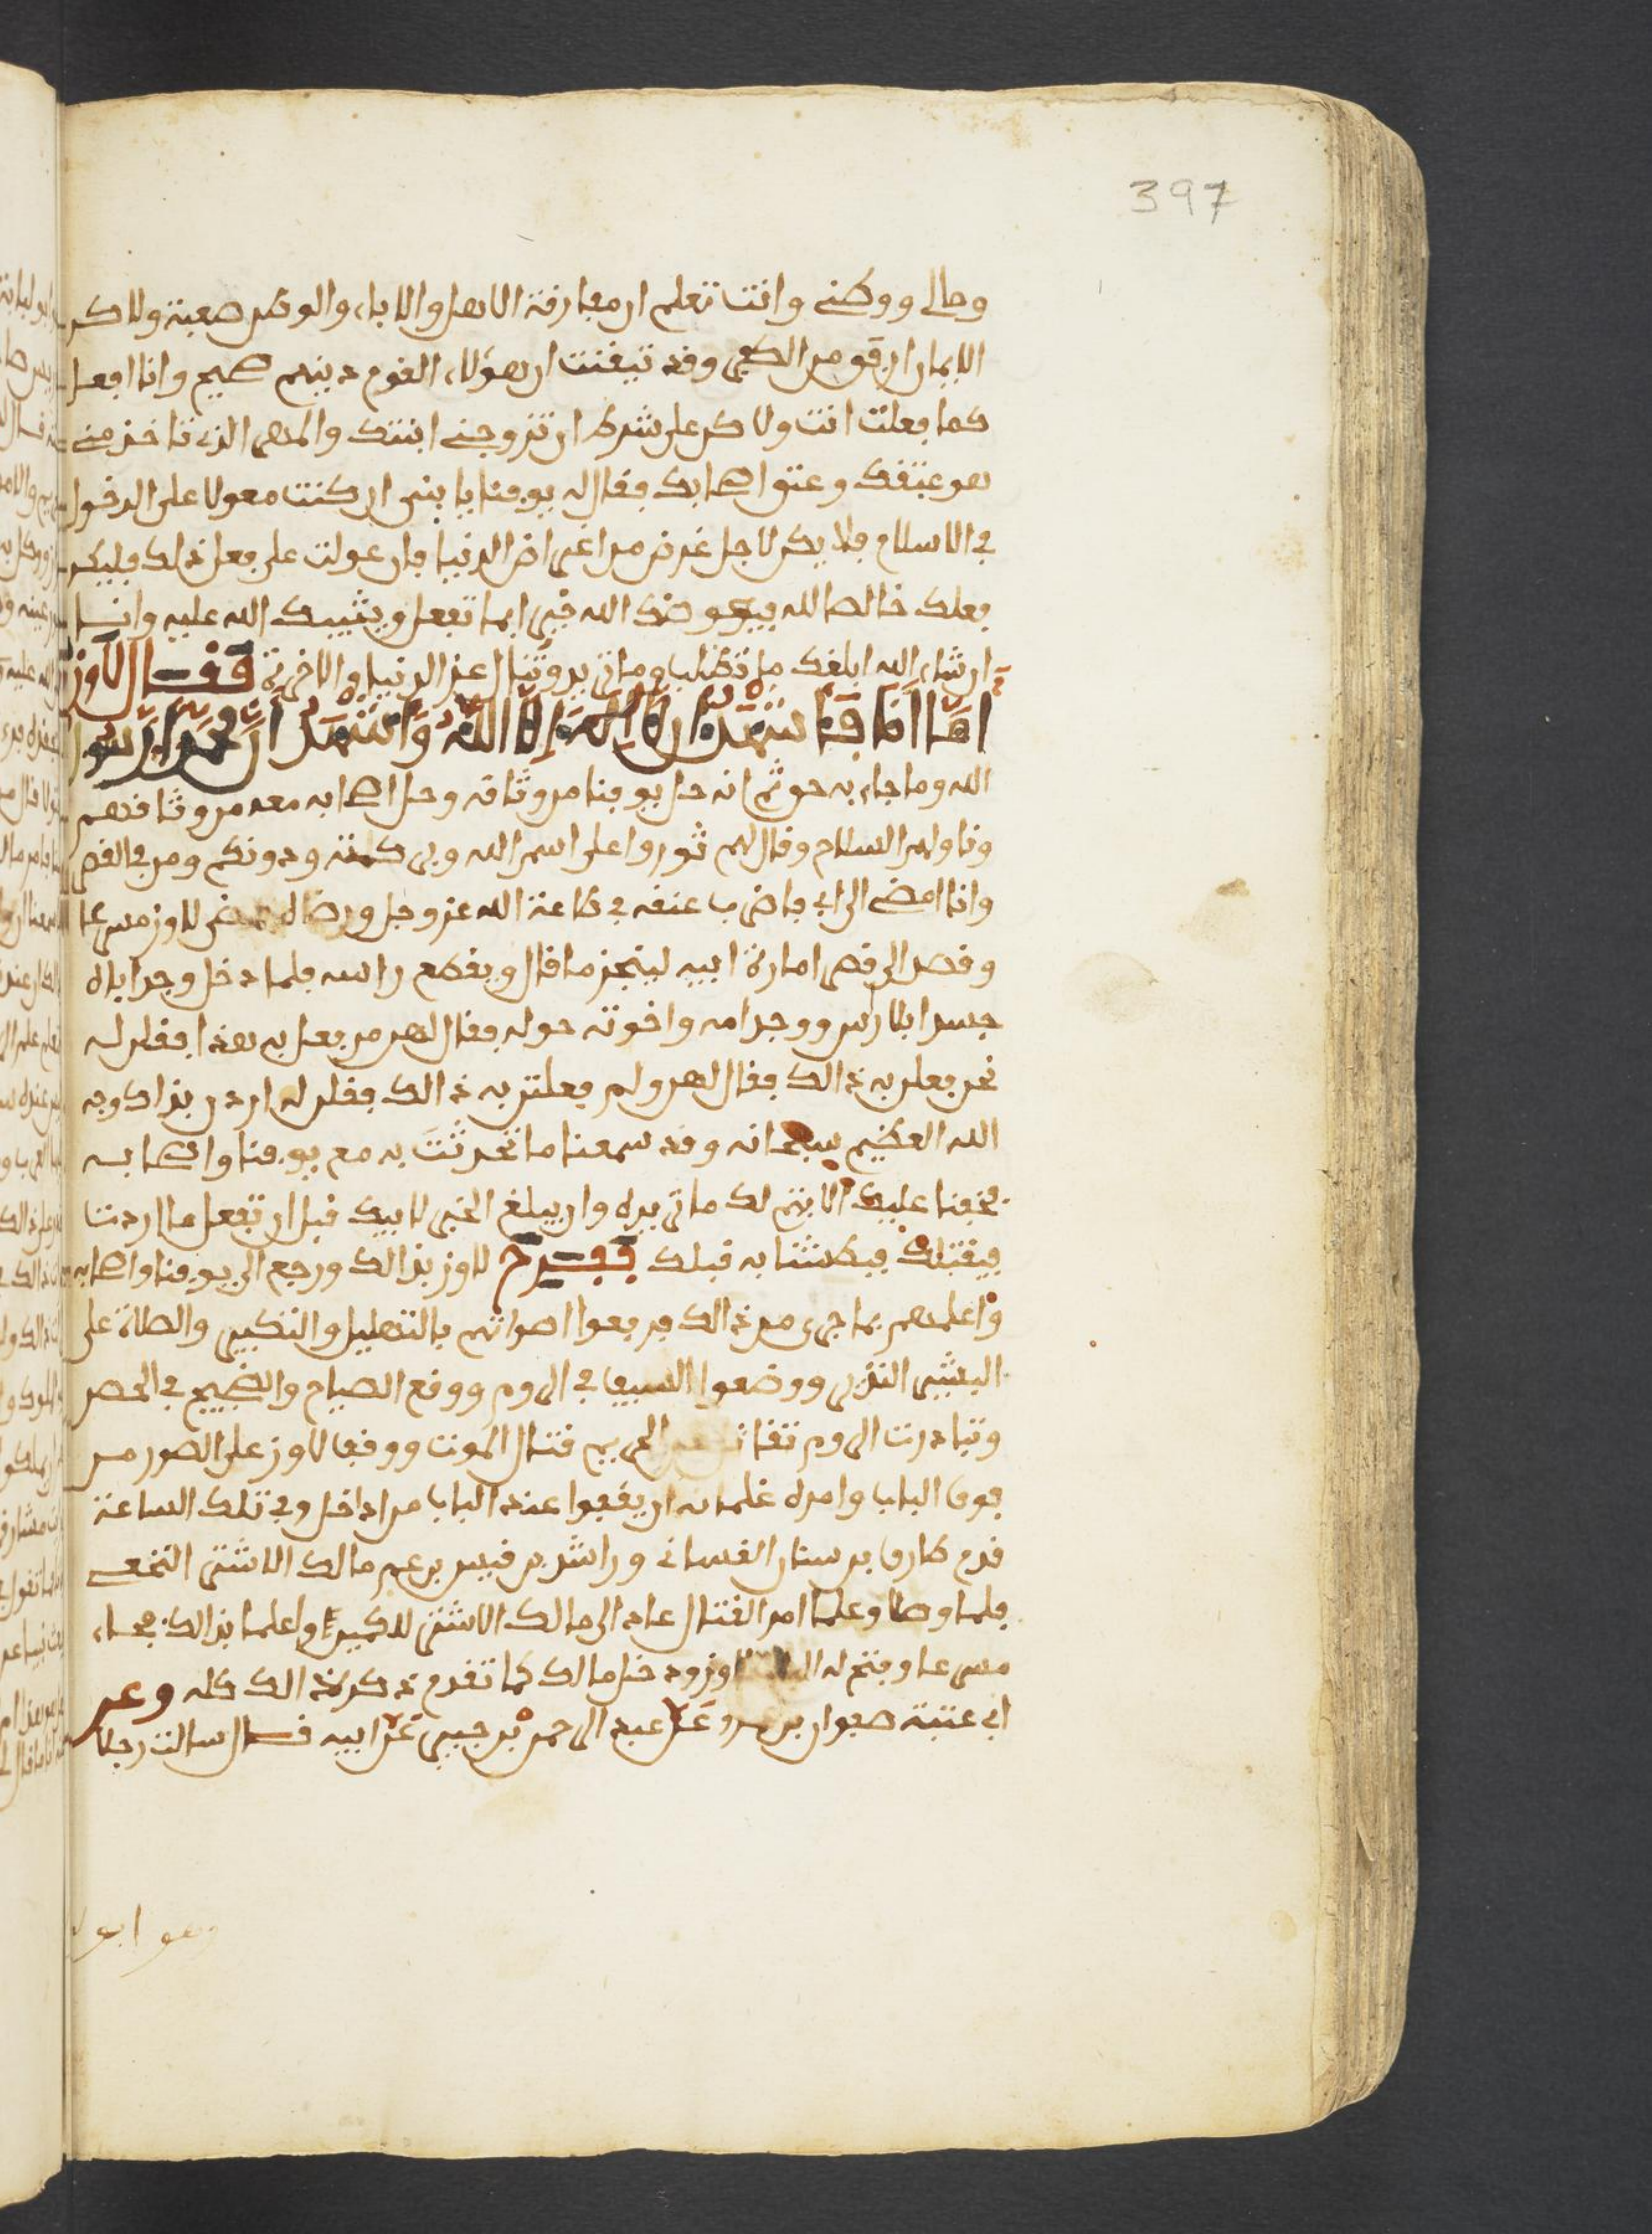 397
ومالي ووطني وانت تعلم ان مفارفة الاهل والاباء والوطن صعبة ولاكن
الايمان ارفى من الكفر وقد تيقنت ان هؤلاء القوم دينهم صحيح وانا افعل
كما فعلت انت ولاكن على شرط ان تزوجني ابنتك والمهر الذي تاخذ مني
هو عتقك وعتق اصحابك فقال له يوقنا يا بني ان كنت معولا على الدخول
في الاسلام فلا يكن لاجل غرض من اغراض الدنيا فان عولت على فعل ذلك فليكن
فعلك خالصا لله فيعوضك الله خيرا بما تفعل ويثيبك الله عليه وانا
ان شاء الله ابلغك ما تطلب وما تريد وتنال عز الدنيا والاخرة فقال لاوز
اما انا فاشهد ان لا اله الا الله واشهد ان محمدا رسول
الله وما جاء به حق ثم انه حل يوقنا من وثاقه وحل اصحابه معه من وثاقهم
وناولهم السلاح وقال لهم ثوروا على اسم الله وبركته ودونكم ومن في القصر
وانا امضي الى ابي فاضرب عنقه في طاعة الله عز وجل ورضاه لاوز مسرعا
وقصد الى قصر امارة ابيه لينجز ما قال ويقطع راسه فلما دخل وجد اباه
جسدا بلا راس ووجد امه واخوته حوله فقال لهن من فعل به هذا فقلن له
نحن فعلن به ذالك فقال لهن ولم فعلتن به ذالك فقلن له اردن بذاك وجه
الله العظيم سبحانه وقد سمعنا ما تحدثت به مع يوقنا واصحابه
فخفنا عليك الا يتم لك ما تريده وان يبلغ الخبر لابيك قبل ان تفعل ما اردت
فيقتلك فبطشنا به قبلك ففرح لاوز بذالك ورجع الى يوقنا واصحابه
واعلمهم بما جرى من ذالك فرفعوا اصواتهم بالتهليل والتكبير والصلاة على
البشير النذير ووضعوا السيف في الروم ووقع الصياح والضجيج في الحصن
وتبادرت الروم تقاتل الحريم قتال الموت ووقف لاوز على الصور من
فوق الباب وامره غلمانه ان يقفوا عند الباب من داخل وفي تلك الساعة
قدم طارق بن سنان الغساني وراشد بن قيس بن عم مالك الاشتر النخعي
فلما وصلا وعلما امر القتال عاد الى مالك الاشتر واعلما بذالك فجاء
مسرعا وفتح له لاوز ودخل مالك كما تقدم ذكر ذالك كله وعن
ابي عتبة صفوان بن عن عبد الرحمن بن جبير عن ابيه قال سالت رجلا
وهو ابو